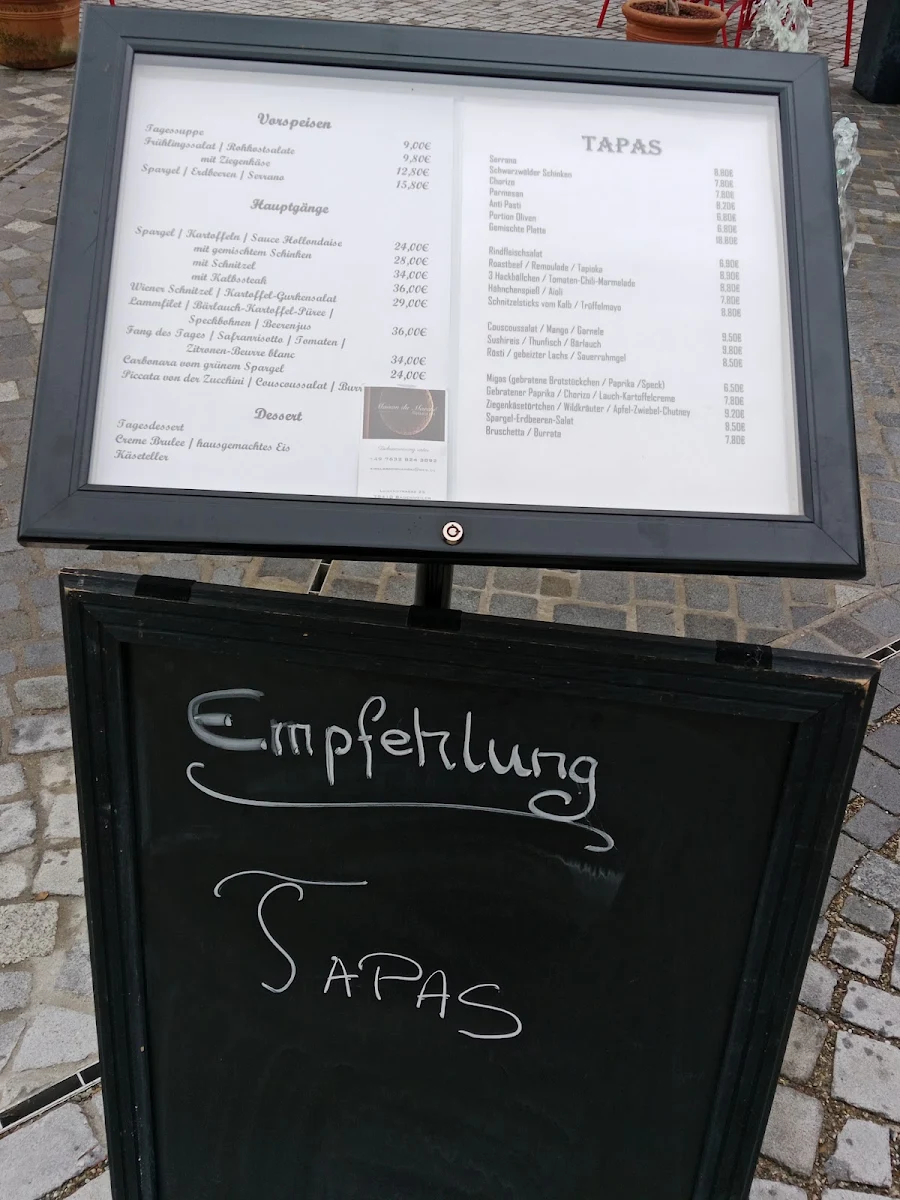 Vorspeisen
Tagessuppe 9,00€
Frühlingssalat / Rohkostsalate 9,80€
mit Ziegenkäse 12,80€
Spargel / Erdbeeren / Serrano 15,80€
Hauptgänge
Spargel / Kartoffeln / Sauce Hollondaise 24,00€
mit gemischtem Schinken 28,00€
mit Schnitzel 34,00€
mit Kalbssteak 36,00€
Wiener Schnitzel / Kartoffel-Gurkensalat 29,00€
Lammfilet / Bärlauch-Kartoffel-Püree /
Speckbohnen / Beerenjus 36,00€
Fang des Tages / Safranrisotto / Tomaten /
Zitronen-Beurre blanc 34,00€
Carbonara vom grünem Spargel 24,00€
Piccata von der Zucchini / Couscoussalat /
Dessert
Tagesdessert
Creme Brulee / hausgemachtes Eis
Käseteller
TAPAS
Serrano 8.80€
Schwarzwälder Schinken 7.80€
Chorizo 7.80€
Parmesan 8.20€
Anti Pasti 6.80€
Portion Oliven 6.80€
Gemischte Platte 18.80€
Rindfleischsalat 6.90€
Roastbeef / Remoulade / Tapioka 8.90€
3 Hackbällchen / Tomaten-Chili-Marmelade 8.80€
Hähnchenspieß / Aioli 7.80€
Schnitzelsticks vom Kalb / Trüffelmayo 8.80€
Couscoussalat / Mango / Garnele 9,50€
Sushireis / Thunfisch / Bärlauch 9,80€
Rösti / gebeizter Lachs / Sauerrahmgel 8,50€
Migas (gebratene Brotstückchen / Paprika /Speck) 6,50€
Gebratener Paprika / Chorizo / Lauch-Kartoffelcreme 7.80€
Ziegenkäsetörtchen / Wildkräuter / Apfel-Zwiebel-Chutney 9.20€
Spargel-Erdbeeren-Salat 8,50€
Bruschetta / Burrata 7.80€
Empfehlung
TAPAS